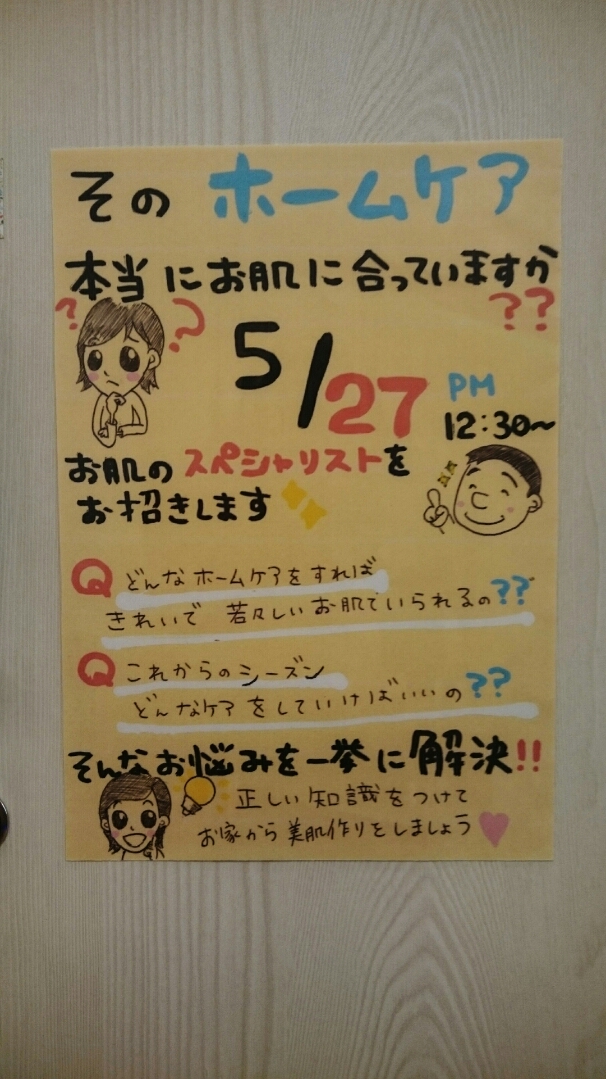 そのホームケア
本当にお肌に合っていますか
??
5/27
PM
12:30～
お肌のスペシャリストを
お招きします
Q どんなホームケアをすれば
きれいで 若々しいお肌でいられるの??
Q これからのシーズン
どんなケアをしていけばいいの??
そんなお悩みを一挙に解決!!
正しい知識をつけて
お家から美肌作りをしましょう